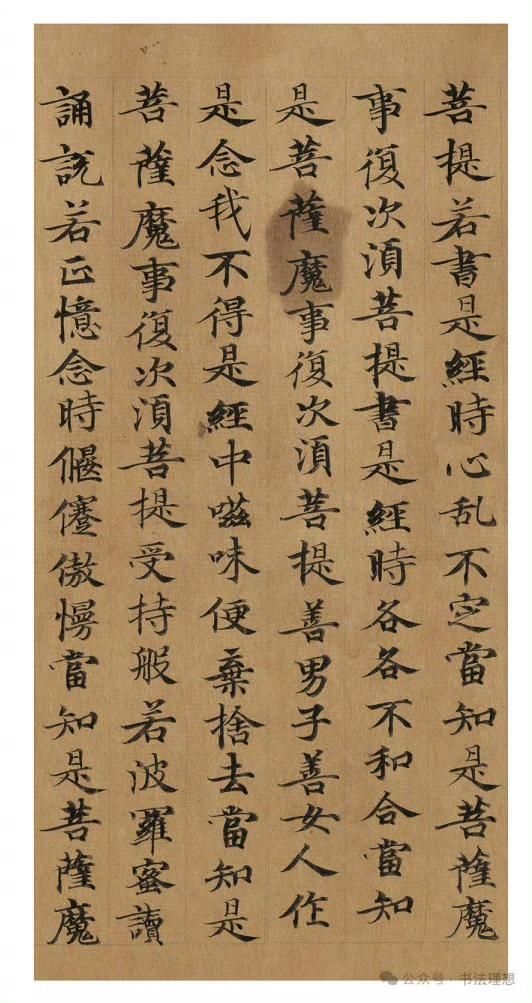 菩提若書是經時心乱不定當知是菩薩魔
事復次湏菩提書是經時各各不和合當知
是菩薩魔事復次湏菩提善男子善女人作
是念我不得是經中嗞味便棄捨去當知是
菩薩魔事復次湏菩提受持般若波羅蜜讀
誦說若正憶念時偃蹇傲慢當知是菩薩魔
公众号·书法理想